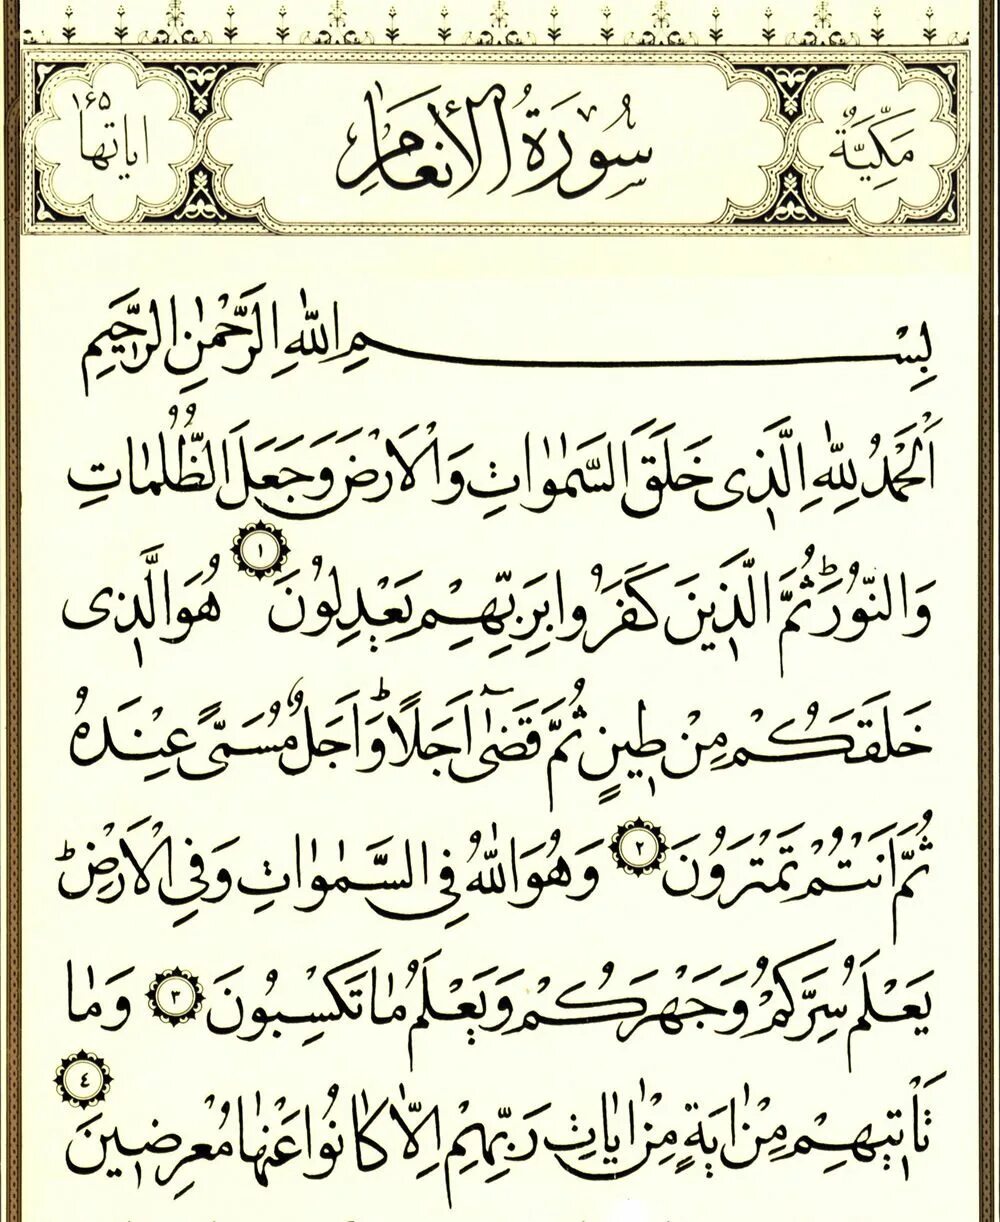 مَكِّيَّةٌ
سُورَةُ الْأَنْعَامِ
١٦٥
اياتها
بِسْمِ اللّٰهِ الرَّحْمٰنِ الرَّحِيمِ
اَلْحَمْدُ لِلّٰهِ الَّذِى خَلَقَ السَّمٰوَاتِ وَالْاَرْضَ وَجَعَلَ الظُّلُمَاتِ
وَالنُّورَۜ ثُمَّ الَّذِينَ كَفَرُوا بِرَبِّهِمْ يَعْدِلُونَ ١ هُوَ الَّذِى
خَلَقَكُمْ مِنْ طِينٍ ثُمَّ قَضٰٓى اَجَلًاۜ وَاَجَلٌ مُسَمًّى عِنْدَهُ
ثُمَّ اَنْتُمْ تَمْتَرُونَ ٢ وَهُوَ اللّٰهُ فِى السَّمٰوَاتِ وَفِى الْاَرْضِۜ
يَعْلَمُ سِرَّكُمْ وَجَهْرَكُمْ وَيَعْلَمُ مَا تَكْسِبُونَ ٣ وَمَا
تَأْتِيهِمْ مِنْ اٰيَةٍ مِنْ اٰيَاتِ رَبِّهِمْ اِلَّا كَانُوا عَنْهَا مُعْرِضِينَ ٤